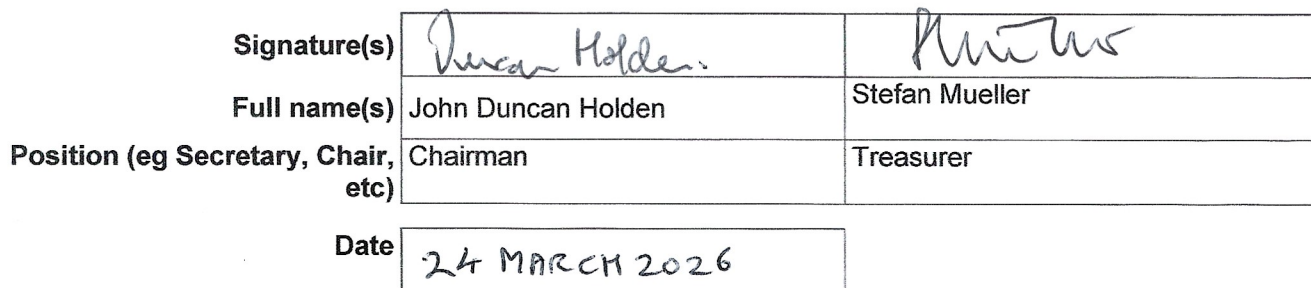 Signature(s) Duncan Holden.
Full name(s) John Duncan Holden Stefan Mueller
Position (eg Secretary, Chair, Chairman Treasurer
etc)
Date 24 MARCH 2026